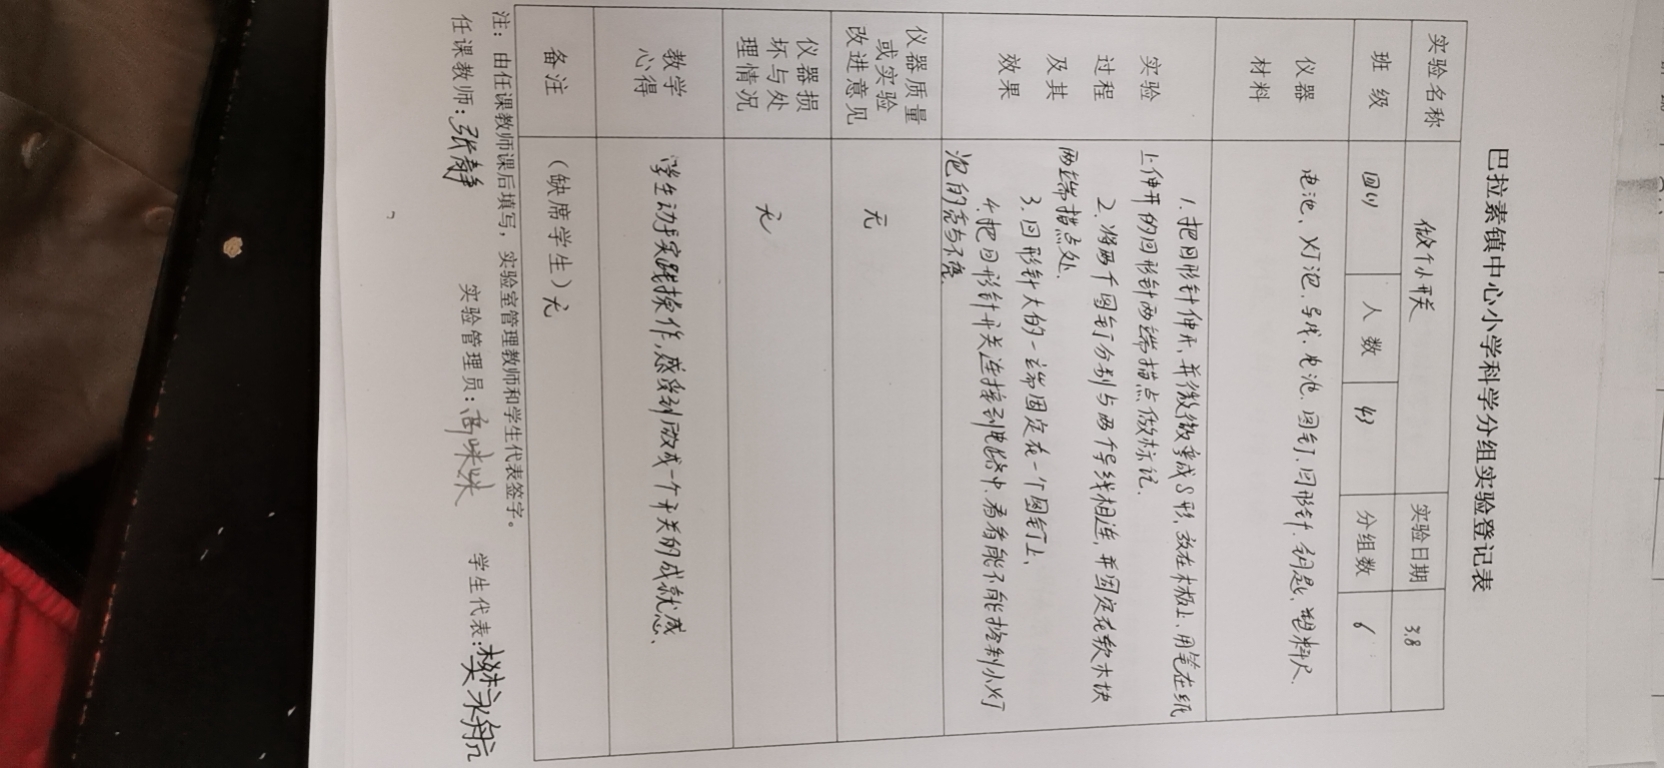 巴拉素镇中心小学科学分组实验登记表
实验名称 做个小开关 实验日期 3.8
班级 四(1) 人数 43 分组数 6
仪器材料 电池、灯泡、导线、电池、图钉、回形针、钥匙、塑料尺.
实验过程及其效果
1. 把回形针伸开,并微微弯成S形,放在木板上,用笔在纸
上伸开的回形针两端描点做标记.
2. 将两个图钉分别与两个导线相连,并固定在软木块
两端描点处.
3. 回形针大的一端固定在一个图钉上,
4. 把回形针开关连接到电路中,看看能不能控制小灯
泡的亮与不亮.
仪器质量或实验改进意见 无
仪器损坏与处理情况 无
教学心得 学生动手实践操作,感受到做成一个开关的成就感、
备注 (缺席学生)无
注:由任课教师课后填写,实验室管理教师和学生代表签字。
任课教师:张静 实验管理员: 学生代表:樊永航